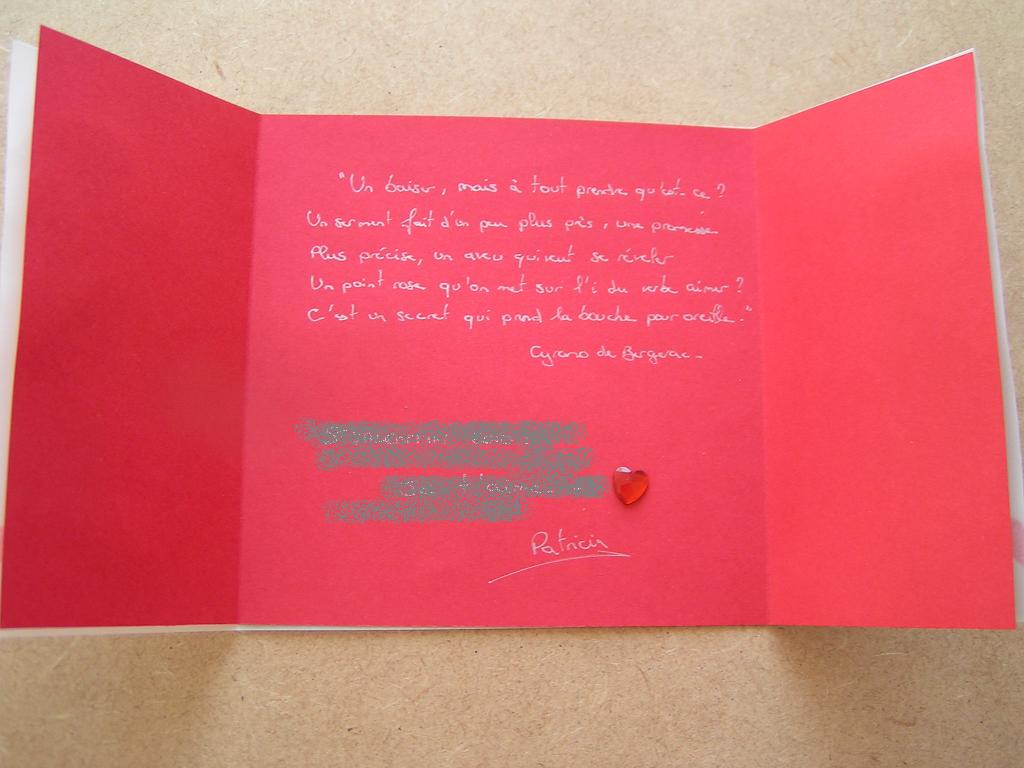 "Un baiser, mais à tout prendre qu'est-ce ?
Un serment fait d'un peu plus près, une promesse
Plus précise, un aveu qui veut se révéler
Un point rose qu'on met sur l'i du verbe aimer ?
C'est un secret qui prend la bouche pour oreille."
Cyrano de Bergerac.
Patricia